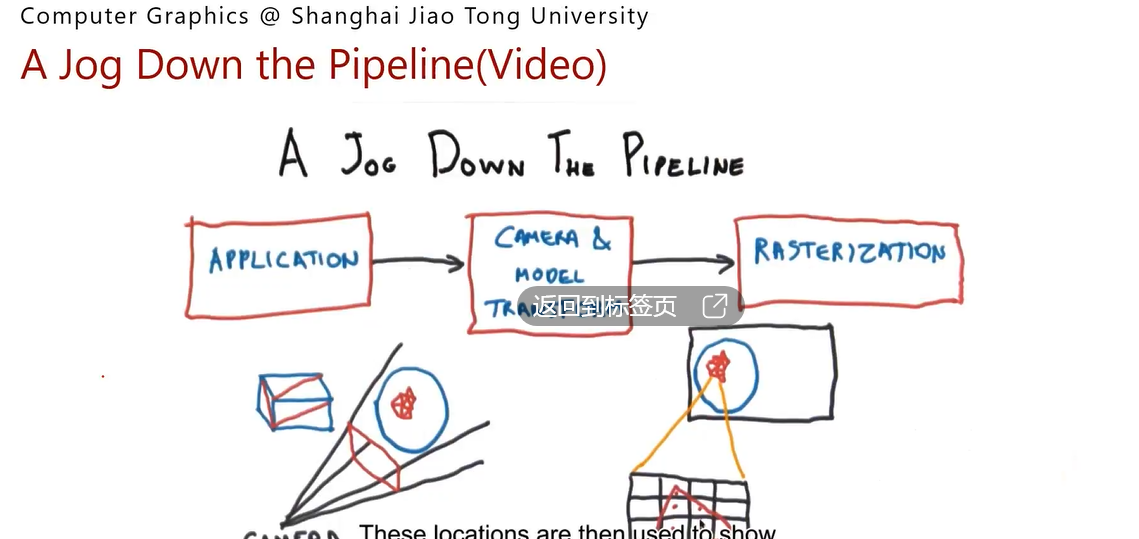 Computer Graphics @ Shanghai Jiao Tong University
A Jog Down the Pipeline(Video)
A JOG DOWN THE PIPELINE
APPLICATION
CAMERA &
MODEL
RASTERIZATION
返回到标签页
CAMERA
These locations are then used to show